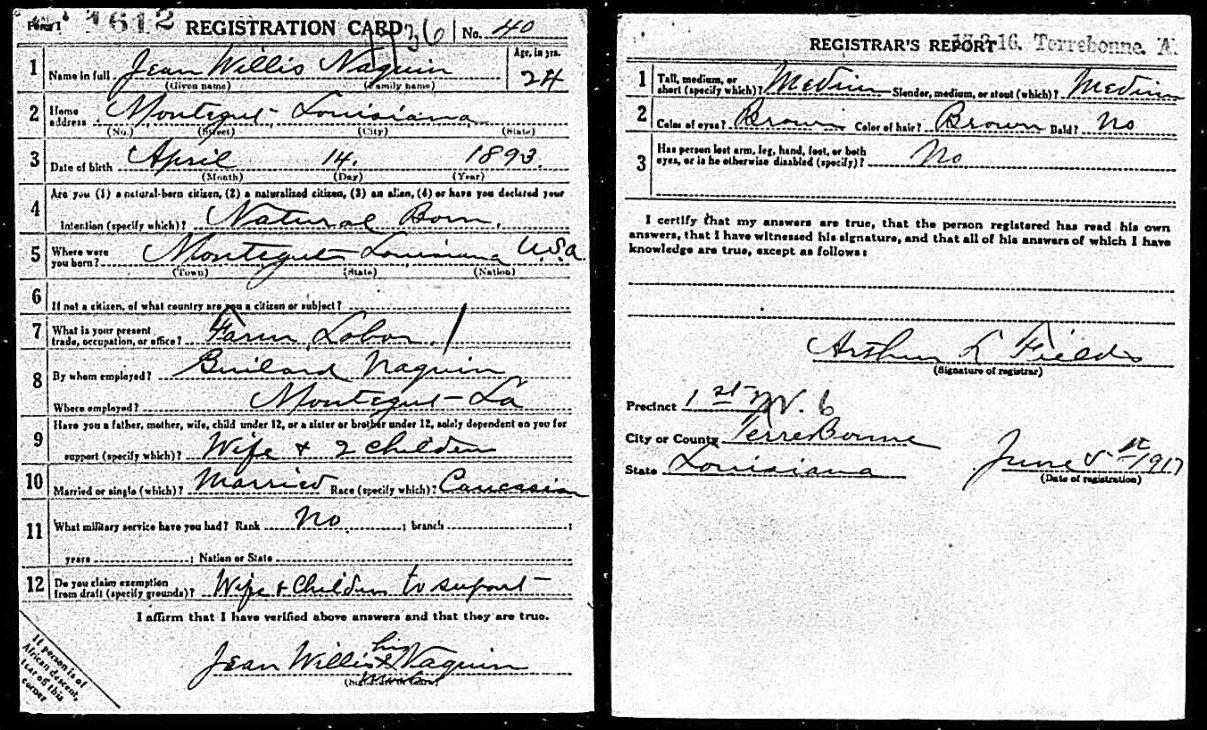 Form 1 1612 REGISTRATION CARD 36 No. 40
1 Name in full Jean Willis Naquin Age, in yrs. 24
(Given name) (Family name)
2 Home address Montegut - Louisiana
(No.) (Street) (City) (State)
3 Date of birth April 14. 1893.
(Month) (Day) (Year)
4 Are you (1) a natural-born citizen, (2) a naturalized citizen, (3) an alien, (4) or have you declared your
intention (specify which)? Natural Born.
5 Where were you born? Montegut Louisiana U.S.a
(Town) (State) (Nation)
6 If not a citizen, of what country are you a citizen or subject?
7 What is your present trade, occupation, or office? Farm Labor.
8 By whom employed? Naquin
Where employed? Montegut - La
9 Have you a father, mother, wife, child under 12, or a sister or brother under 12, solely dependent on you for
support (specify which)? Wife + 2 Children
10 Married or single (which)? Married Race (specify which)? Caucasian
11 What military service have you had? Rank No ; branch ;
years ; Nation or State
12 Do you claim exemption from draft (specify grounds)? Wife + Children to suport -
I affirm that I have verified above answers and that they are true.
Jean Willis his x Naquin
mark
If person is of
African descent,
tear off this
corner
REGISTRAR'S REPORT 17-2-16. Terrebonne. A.
1 Tall, medium, or short (specify which)? Medium Slender, medium, or stout (which)? Medium
2 Color of eyes? Brown Color of hair? Brown Bald? No
3 Has person lost arm, leg, hand, foot, or both
eyes, or is he otherwise disabled (specify)? No
I certify that my answers are true, that the person registered has read his own
answers, that I have witnessed his signature, and that all of his answers of which I have
knowledge are true, except as follows:
Arthur L Fields
(Signature of registrar)
Precinct 1st W. 6
City or County TerreBonne
State Louisiana June 5th 1917
(Date of registration)